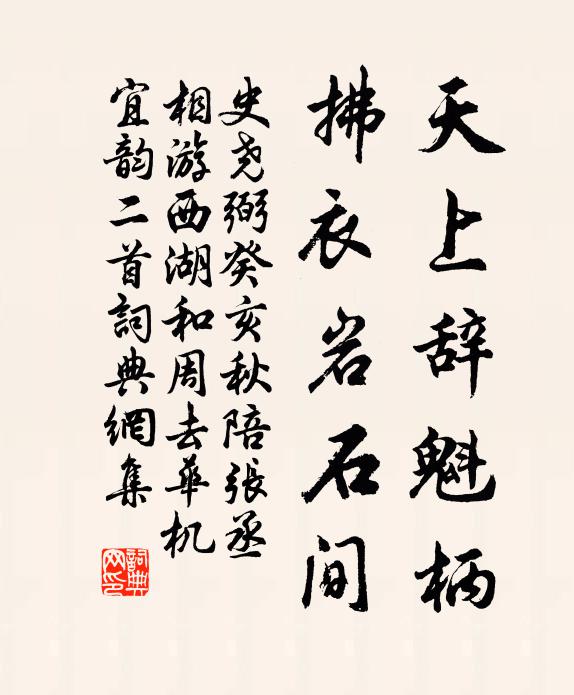 天上辞魁柄
拂衣岩石间
史尧弼癸亥秋陪張丞
相游西湖和周去華机
宜韵二首詞典網集
詞典網印